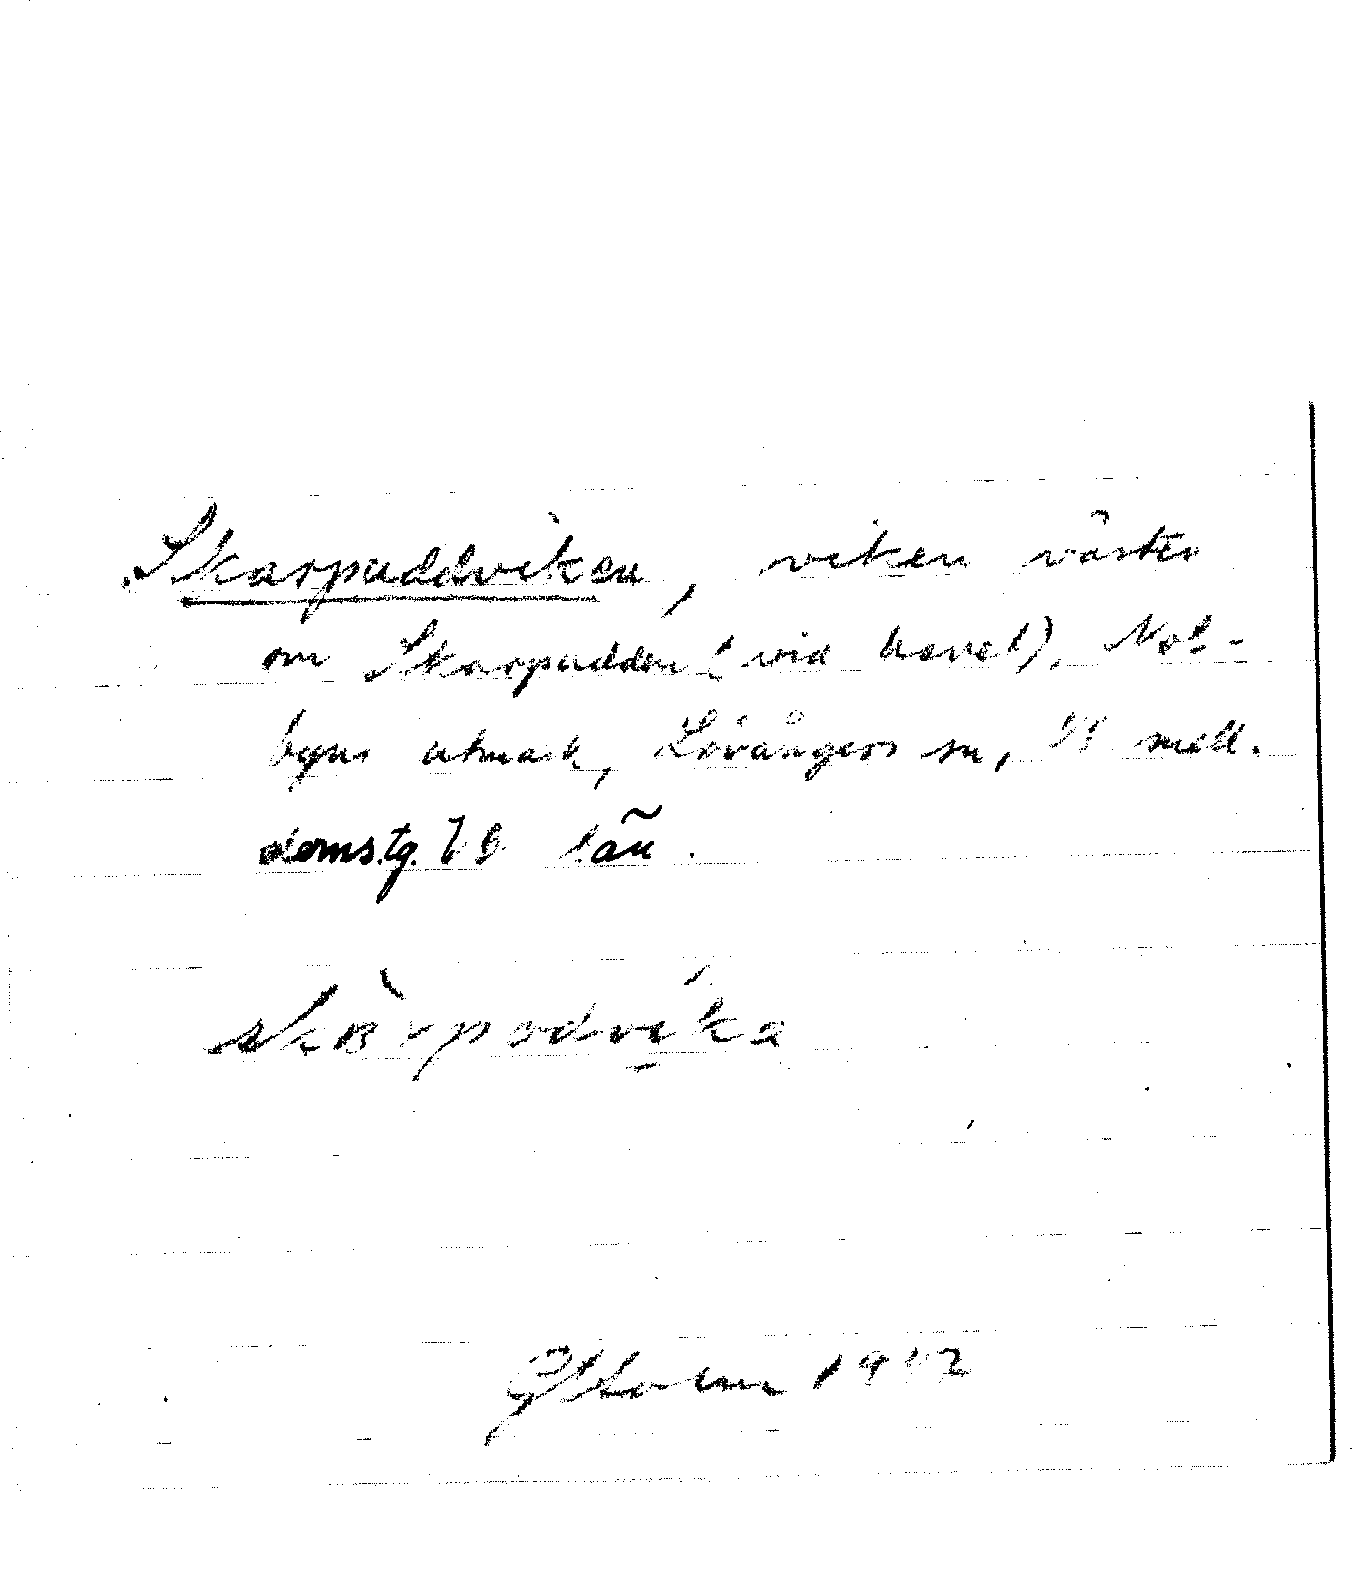 Skarpuddviken, viken väster
om Skarpudden (vid havet). Nol-
byns utmark, Lövångers sn, mell.
domstg. VB län.
skarpudvika
G Holm 1942